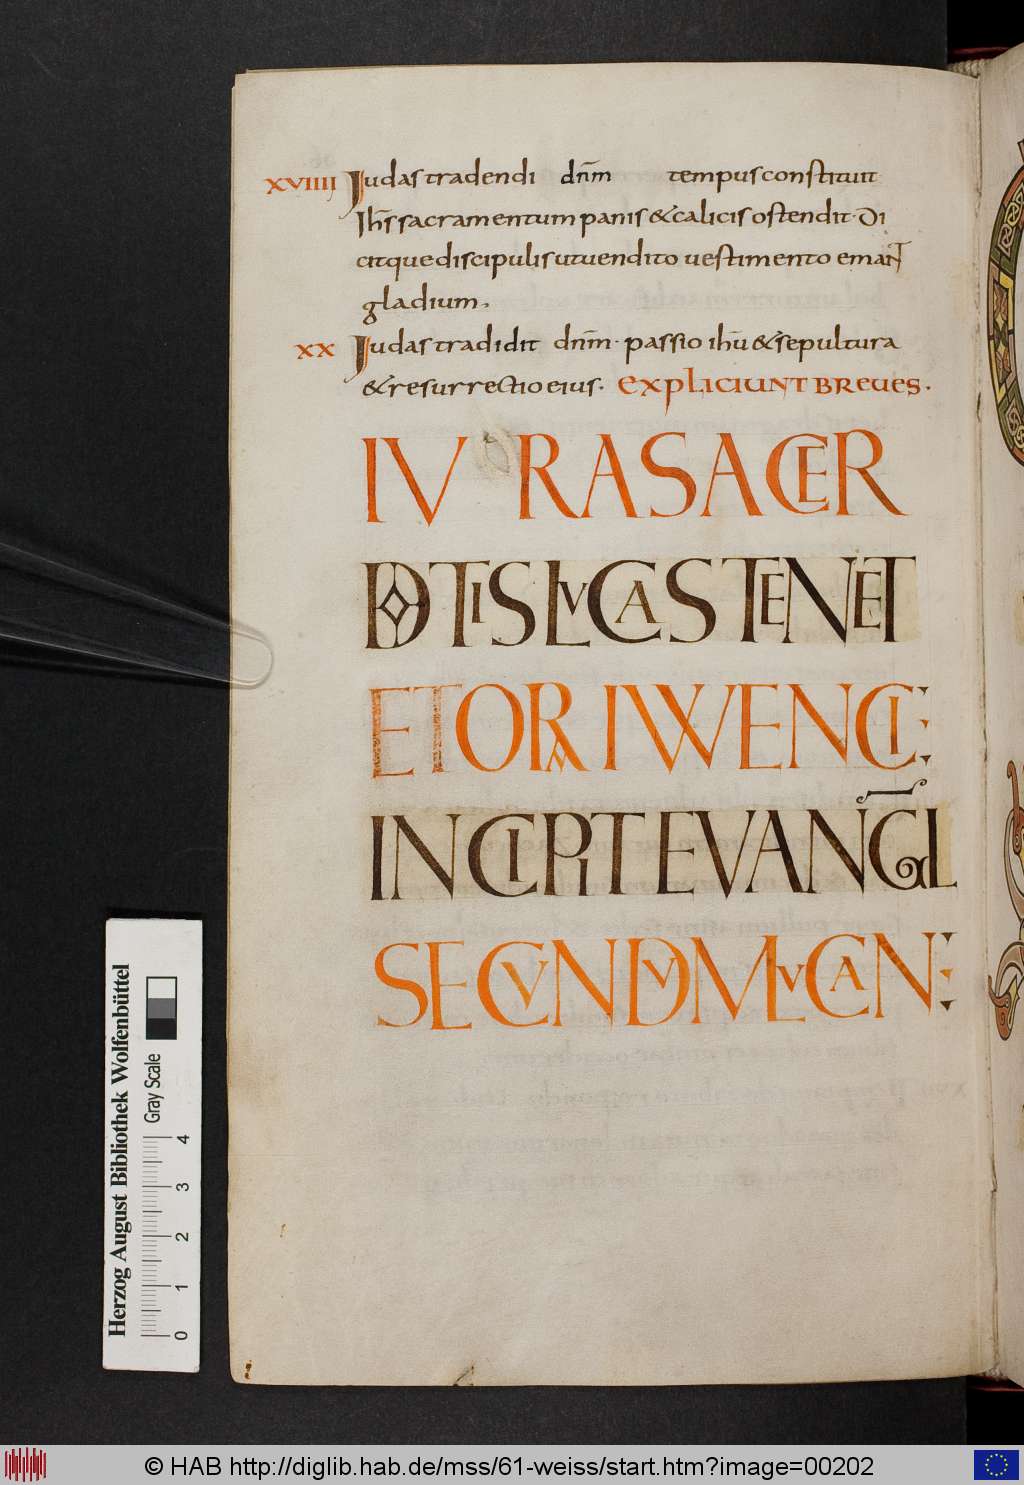 XVIIII Judas tradendi dn̄m tempus constituit
Ih̄s sacramentum panis & calicis ostendit · Di
citque discipulis ut vendito vestimento emaNT
gladium.
XX Judas tradidit dn̄m · passio ih̄u & sepultura
& resurrectio eius. EXPLICIUNT BREVES.
IV RA SACER
DOTIS LVCAS TENET
ET ORA IVVENCI:
INCIPIT EVANGL̄
SECVNDVM LVCAN:
Herzog August Bibliothek Wolfenbüttel
Gray Scale
0 1 2 3 4
© HAB http://diglib.hab.de/mss/61-weiss/start.htm?image=00202